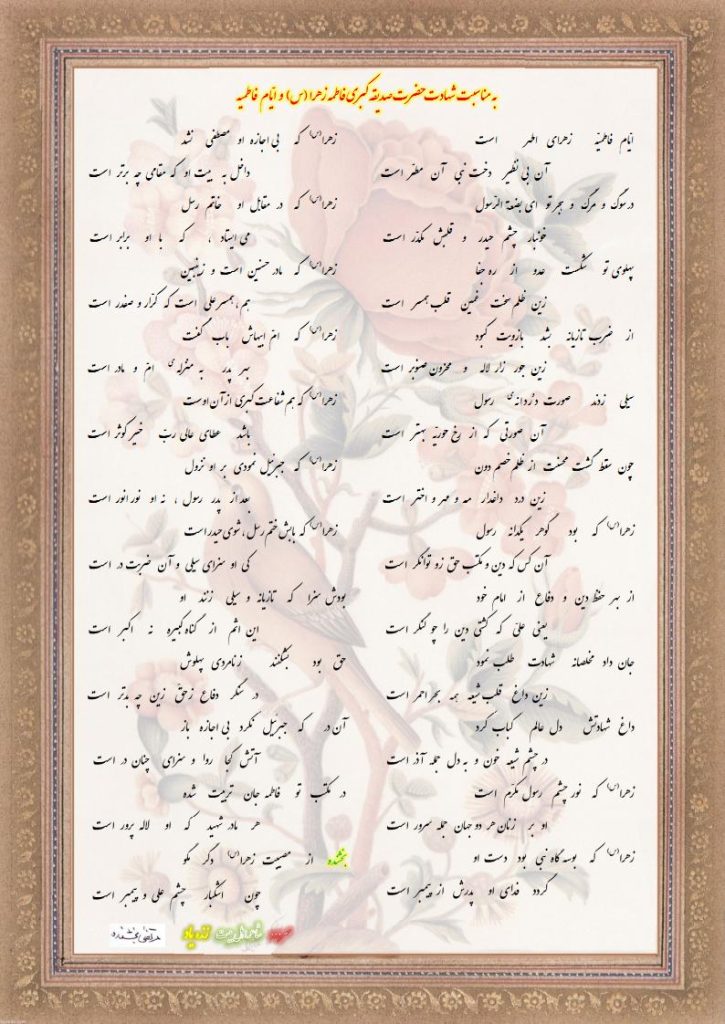 به مناسبت شهادت حضرت صدیقه کبری فاطمه زهرا (س) و ایّام فاطمیه
ایّام فاطمیّه زهرای اطهر است
آن بی نظیر دخت نبی آن مطهّر است
در سوگ و مرگ و هجر تو ای بضعة الرّسول
خونبار چشم حیدر و قلبش مکدّر است
پهلوی تو شکست عدو از ره جفا
زین ظلم سخت غمین قلب همسر است
از ضرب تازیانه بشد بازویت کبود
زین جور زار لاله و محزون صنوبر است
سیلی زدند صورت دُردانهٔ رسول
آن صورتی که از رخ حوریه بهتر است
چون سقط گشت محسنت از ظلم خصم دون
زین درد داغدار مه و مهر و اختر است
زهرا(س) که بود گوهر یکدانه رسول
آن کس که دین و مکتب حق زو توانگر است
از بهر حفظ دین و دفاع از امام خود
یعنی علی که کشتی دین را چو لنگر است
جان داد مخلصانه شهادت طلب نمود
زین داغ قلب شیعه همه بحر احمر است
داغ شهادتش دل عالم کباب کرد
در چشم شیعه خون و به دل جمله آذر است
زهرا(س) که نور چشم رسول مکرّم است
او بر زنان هر دو جهان جمله سرور است
زهرا(س) که بوسه گاه نبی بود دست او
گردد فدای او پدرش از پیمبر است
زهرا(س) که بی اجازه او مصطفی نشد
داخل به بیت او که مقامی چه برتر است
زهرا(س) که در مقابل او خاتم رسل
می ایستاد ، که با او برابر است
زهرا(س) که مادر حسنین است و زینبین
هم ، همسر علی است که کرّار و صفدر است
زهرا(س) که امّ ابیهاش باب گفت
بهر پدر به منزلهٔ امّ و مادر است
زهرا(س) که هم شفاعت کبری از آن اوست
باشد عطای عالی ربّ خیر کوثر است
زهرا(س) که جبرئیل نمودی بر او نزول
بعد از پدر رسول ، نه او نور انور است
زهرا(س) که بابش ختم رسل ، شوی حیدر است
کی او سزای سیلی و آن ضربت در است
بودش سزا که تازیانه و سیلی زنند او
این اثم از گناه کبیره نه اکبر است
حق بود بشکنند زنامردی پهلوش
در سنگر دفاع زحق زین چه بدتر است
آن در که جبرئیل نکرد بی اجازه باز
آتش کجا روا و سزای چنان در است
در مکتب تو فاطمه جان تربیت شده
هر مادر شهید که او لاله پرور است
بخشنده از مصیبت زهرا(س) دگر مگو
چون اشکبار چشم علی و پیمبر است